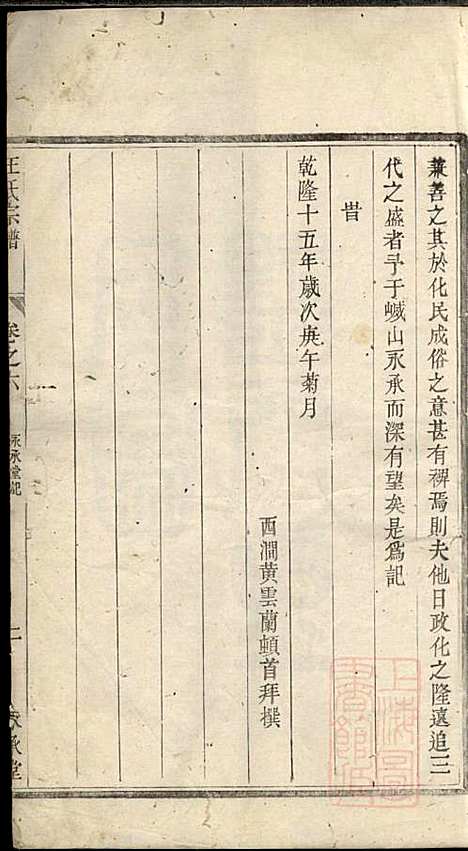 兼善之其於化民成俗之意甚有裨焉則夫他日政化之隆遠追三
代之盛者予于㠓山永承而深有望矣是爲記
旹
乾隆十五年歲次庚午菊月
西澗黃雲蘭頓首拜撰
汪氏宗譜
卷之六
永承堂記
二
永承堂
上海圖書館藏